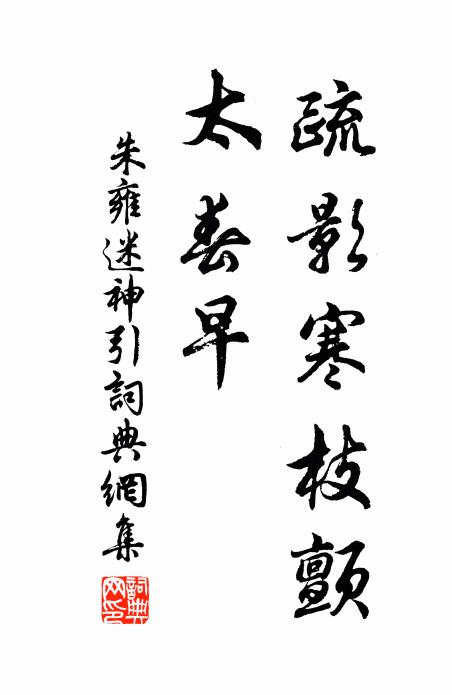 疏影寒枝顫
太春早
朱雍迷神引詞典網集
詞典網印